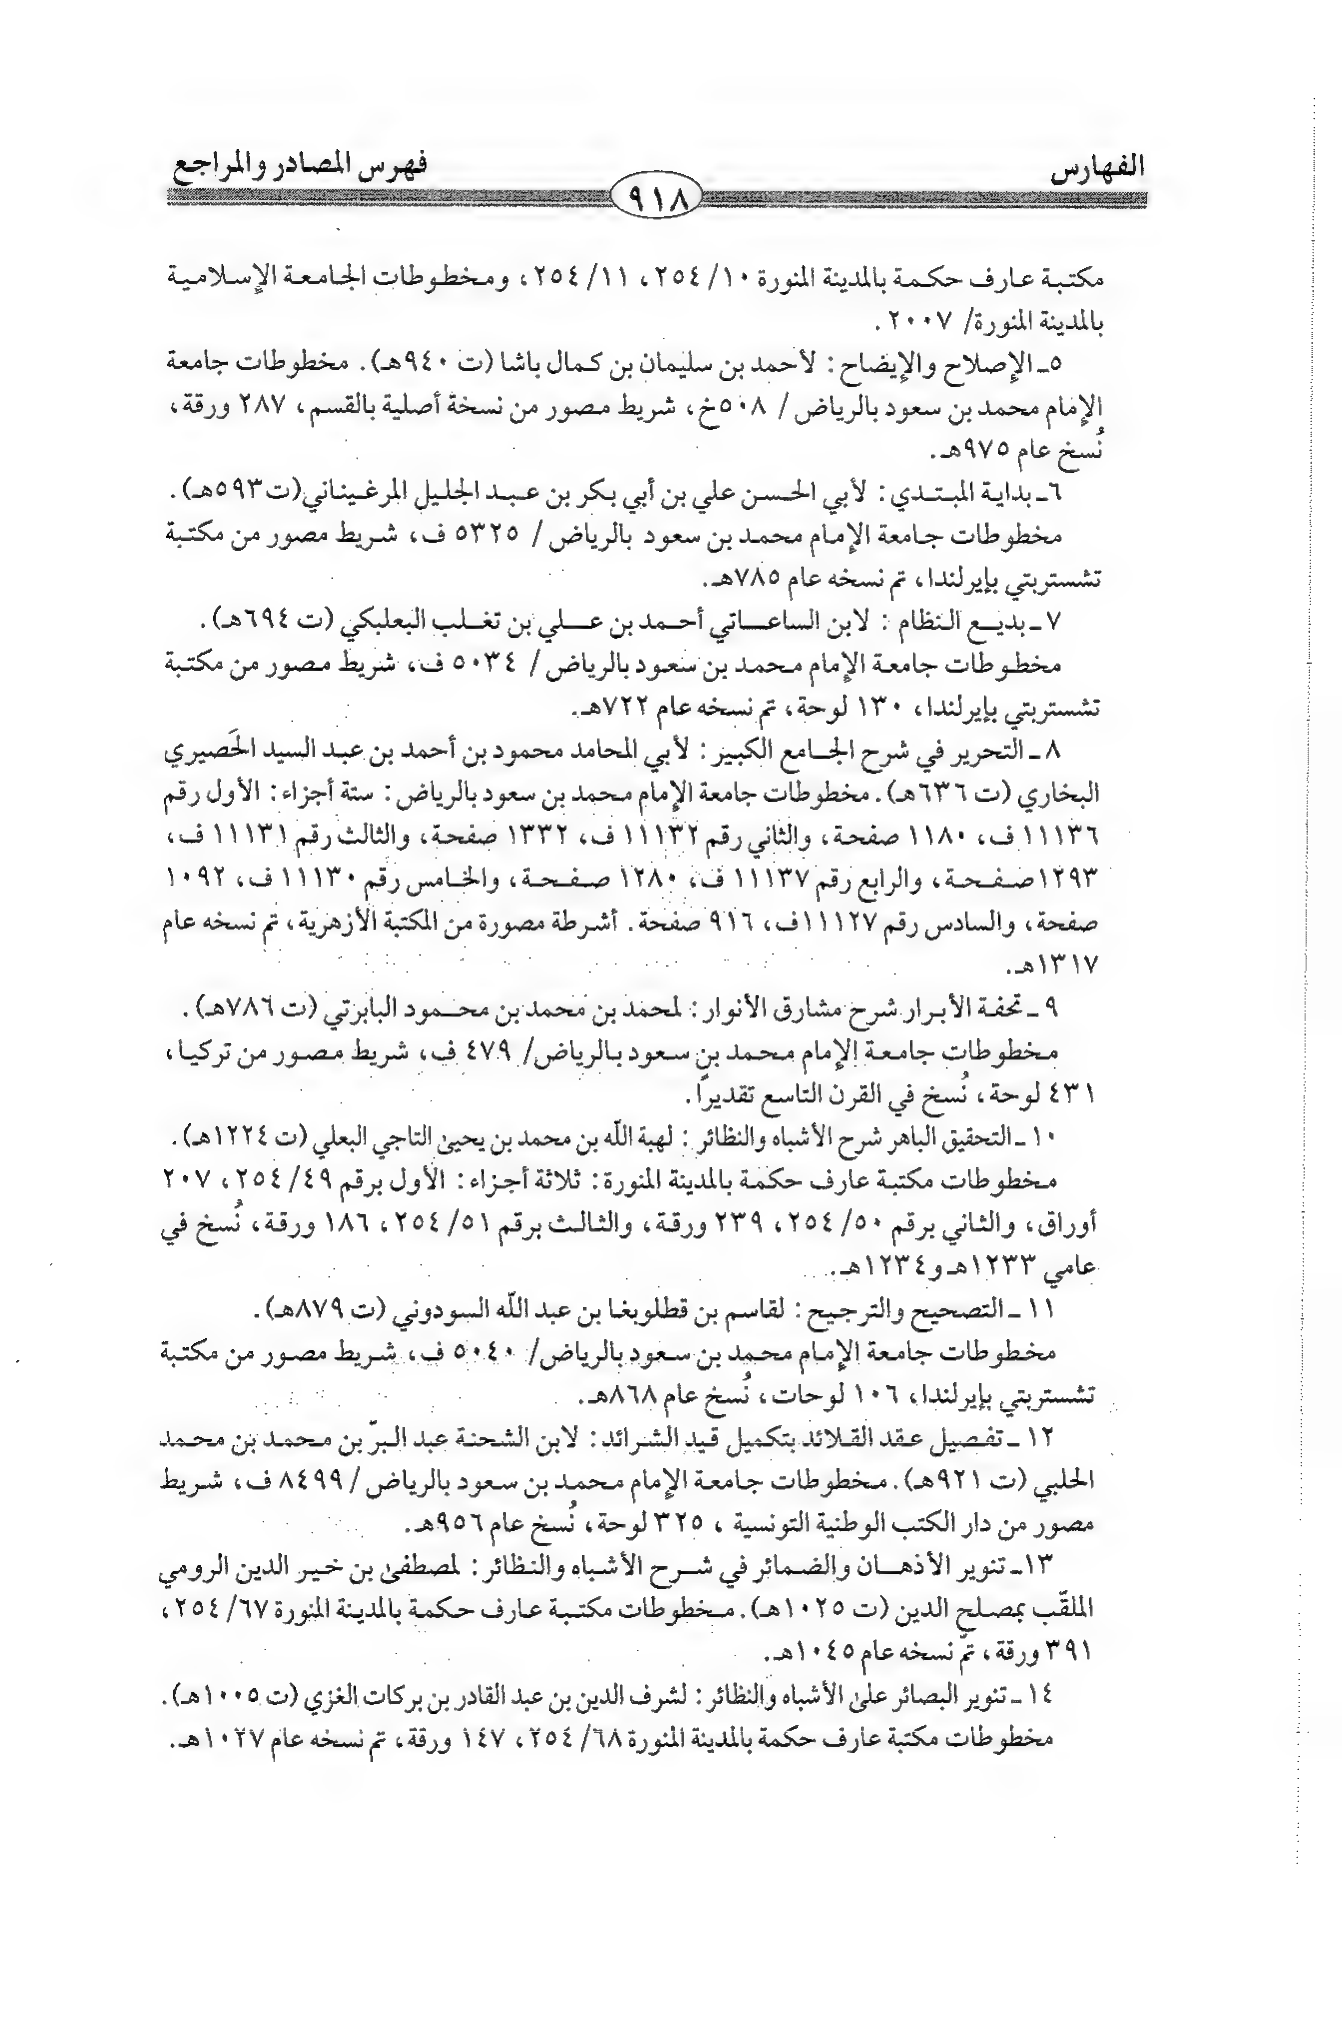 الفهارس
فهرس المصادر والمراجع
٩١٨
مكتبة عارف حكمة بالمدينة المنورة ١٠/ ٢٥٤، ١١/ ٢٥٤، ومخطوطات الجامعة الإسلامية
بالمدينة المنورة/ ٢٠٠٧.
٥ـ الإصلاح والإيضاح: لأحمد بن سليمان بن كمال باشا (ت ٩٤٠هـ). مخطوطات جامعة
الإمام محمد بن سعود بالرياض / ٥٠٨خ، شريط مصور من نسخة أصلية بالقسم، ٢٨٧ ورقة،
نُسخ عام ٩٧٥هـ.
٦ـ بداية المبتدي: لأبي الحسن علي بن أبي بكر بن عبد الجليل المرغيناني(ت٥٩٣هـ).
مخطوطات جامعة الإمام محمد بن سعود بالرياض / ٥٣٢٥ ف، شريط مصور من مكتبة
تشستربتي بإيرلندا، تم نسخه عام ٧٨٥هـ.
٧ـ بديع النظام : لابن الساعاتي أحمد بن علي بن تغلب البعلبكي (ت ٦٩٤هـ).
مخطوطات جامعة الإمام محمد بن سعود بالرياض / ٥٠٣٤ ف، شريط مصور من مكتبة
تشستربتي بإيرلندا، ١٣٠ لوحة، تم نسخه عام ٧٢٢هـ.
٨ـ التحرير في شرح الجامع الكبير: لأبي المحامد محمود بن أحمد بن عبد السيد الحَصيري
البخاري (ت ٦٣٦هـ). مخطوطات جامعة الإمام محمد بن سعود بالرياض: ستة أجزاء: الأول رقم
١١١٣٦ ف، ١١٨٠ صفحة، والثاني رقم ١١١٣٢ ف، ١٣٣٢ صفحة، والثالث رقم ١١١٣١ ف،
١٢٩٣صفحة، والرابع رقم ١١١٣٧ ف، ١٢٨٠ صفحة، والخامس رقم ١١١٣٠ ف، ١٠٩٢
صفحة، والسادس رقم ١١١٢٧ف، ٩١٦ صفحة. أشرطة مصورة من المكتبة الأزهرية، تم نسخه عام
١٣١٧هـ.
٩ـ تحفة الأبرار شرح مشارق الأنوار: لمحمد بن محمد بن محمود البابرتي (ت ٧٨٦هـ).
مخطوطات جامعة الإمام محمد بن سعود بالرياض/ ٤٧٩ ف، شريط مصور من تركيا،
٤٣١ لوحة، نُسخ في القرن التاسع تقديرًا.
١٠ـ التحقيق الباهر شرح الأشباه والنظائر: لهبة الله بن محمد بن يحيىٰ التاجي البعلي (ت ١٢٢٤هـ).
مخطوطات مكتبة عارف حكمة بالمدينة المنورة: ثلاثة أجزاء: الأول برقم ٤٩/ ٢٥٤، ٢٠٧
أوراق، والثاني برقم ٥٠/ ٢٥٤، ٢٣٩ ورقة، والثالث برقم ٥١/ ٢٥٤، ١٨٦ ورقة، نُسخ في
عامي ١٢٣٣هـ و١٢٣٤هـ.
١١ـ التصحيح والترجيح: لقاسم بن قطلوبغا بن عبد الله السودوني (ت ٨٧٩هـ).
مخطوطات جامعة الإمام محمد بن سعود بالرياض/ ٥٠٤٠ ف، شريط مصور من مكتبة
تشستربتي بإيرلندا، ١٠٦ لوحات، نُسخ عام ٨٦٨هـ.
١٢ـ تفصيل عقد القلائد بتكميل قيد الشرائد: لابن الشحنة عبد البرّ بن محمد بن محمد
الحلبي (ت ٩٢١هـ). مخطوطات جامعة الإمام محمد بن سعود بالرياض / ٨٤٩٩ ف، شريط
مصور من دار الكتب الوطنية التونسية ، ٣٢٥ لوحة، نُسخ عام ٩٥٦هـ.
١٣ـ تنوير الأذهان والضمائر في شرح الأشباه والنظائر: لمصطفىٰ بن خير الدين الرومي
الملقّب بمصلح الدين (ت ١٠٢٥هـ). مخطوطات مكتبة عارف حكمة بالمدينة المنورة ٦٧/ ٢٥٤،
٣٩١ ورقة، تمّ نسخه عام ١٠٤٥هـ.
١٤ـ تنوير البصائر علىٰ الأشباه والنظائر: لشرف الدين بن عبد القادر بن بركات الغزي (ت ١٠٠٥هـ).
مخطوطات مكتبة عارف حكمة بالمدينة المنورة ٦٨/ ٢٥٤، ١٤٧ ورقة، تم نسخه عام ١٠٢٧هـ.